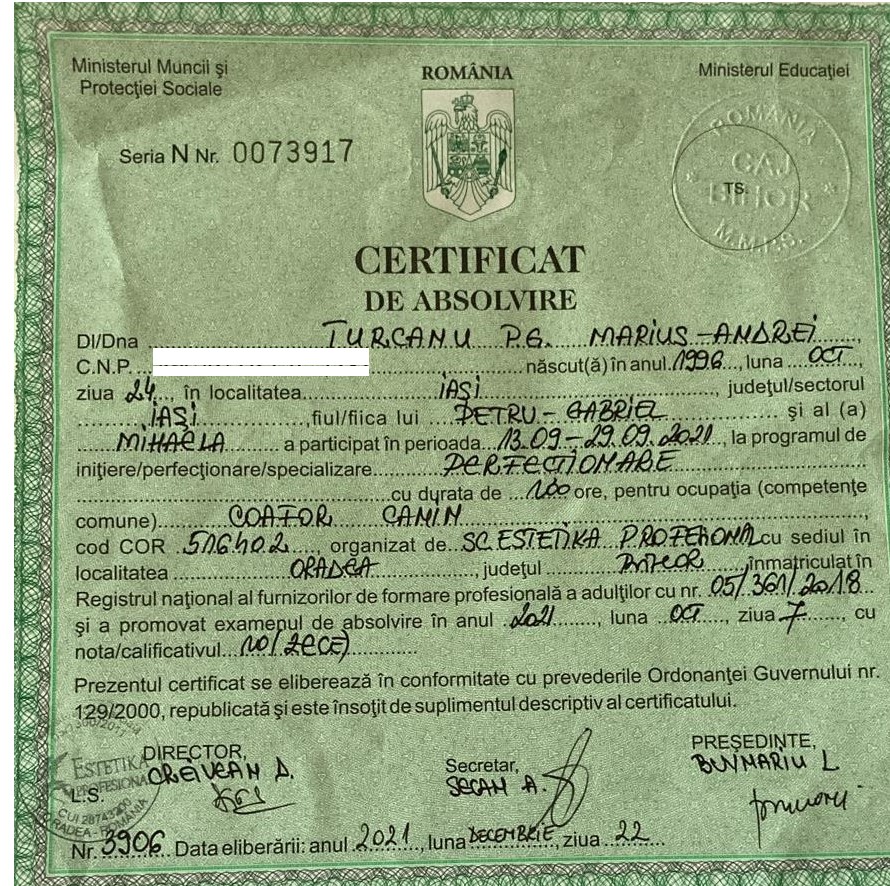 Ministerul Muncii şi
Protecţiei Sociale
ROMÂNIA
Ministerul Educaţiei
Seria N Nr. 0073917
ROMANIA
CAJ
BIHOR
M.M.P.S.
TS.
CERTIFICAT
DE ABSOLVIRE
Dl/Dna TURCANU P.G. MARIUS-ANDREI
C.N.P. născut(ă) în anul 1996, luna OCT
ziua 24, în localitatea IAŞI, judeţul/sectorul
IAŞI, fiul/fiica lui PETRU-GABRIEL şi al (a)
MIHAELA a participat în perioada 13.09-29.09.2021, la programul de
iniţiere/perfecţionare/specializare PERFECŢIONARE
cu durata de 100 ore, pentru ocupaţia (competenţe
comune) COAFOR CANIN,
cod COR 516402, organizat de SC ESTETIKA cu sediul în
localitatea ORADEA, judeţul BIHOR, înmatriculat în
Registrul naţional al furnizorilor de formare profesională a adulţilor cu nr. 05/361/2018
şi a promovat examenul de absolvire în anul 2021, luna OCT, ziua 7, cu
nota/calificativul 10(ZECE)
Prezentul certificat se eliberează în conformitate cu prevederile Ordonanţei Guvernului nr.
129/2000, republicată şi este însoţit de suplimentul descriptiv al certificatului.
DIRECTOR,
Secretar,
PREŞEDINTE,
SECAN A.
L.S.
ESTETIKA
PROFESIONAL
CUI 28743900
ORADEA - ROMANIA
Nr. 3906 Data eliberării: anul 2021, luna DECEMBRIE, ziua 22